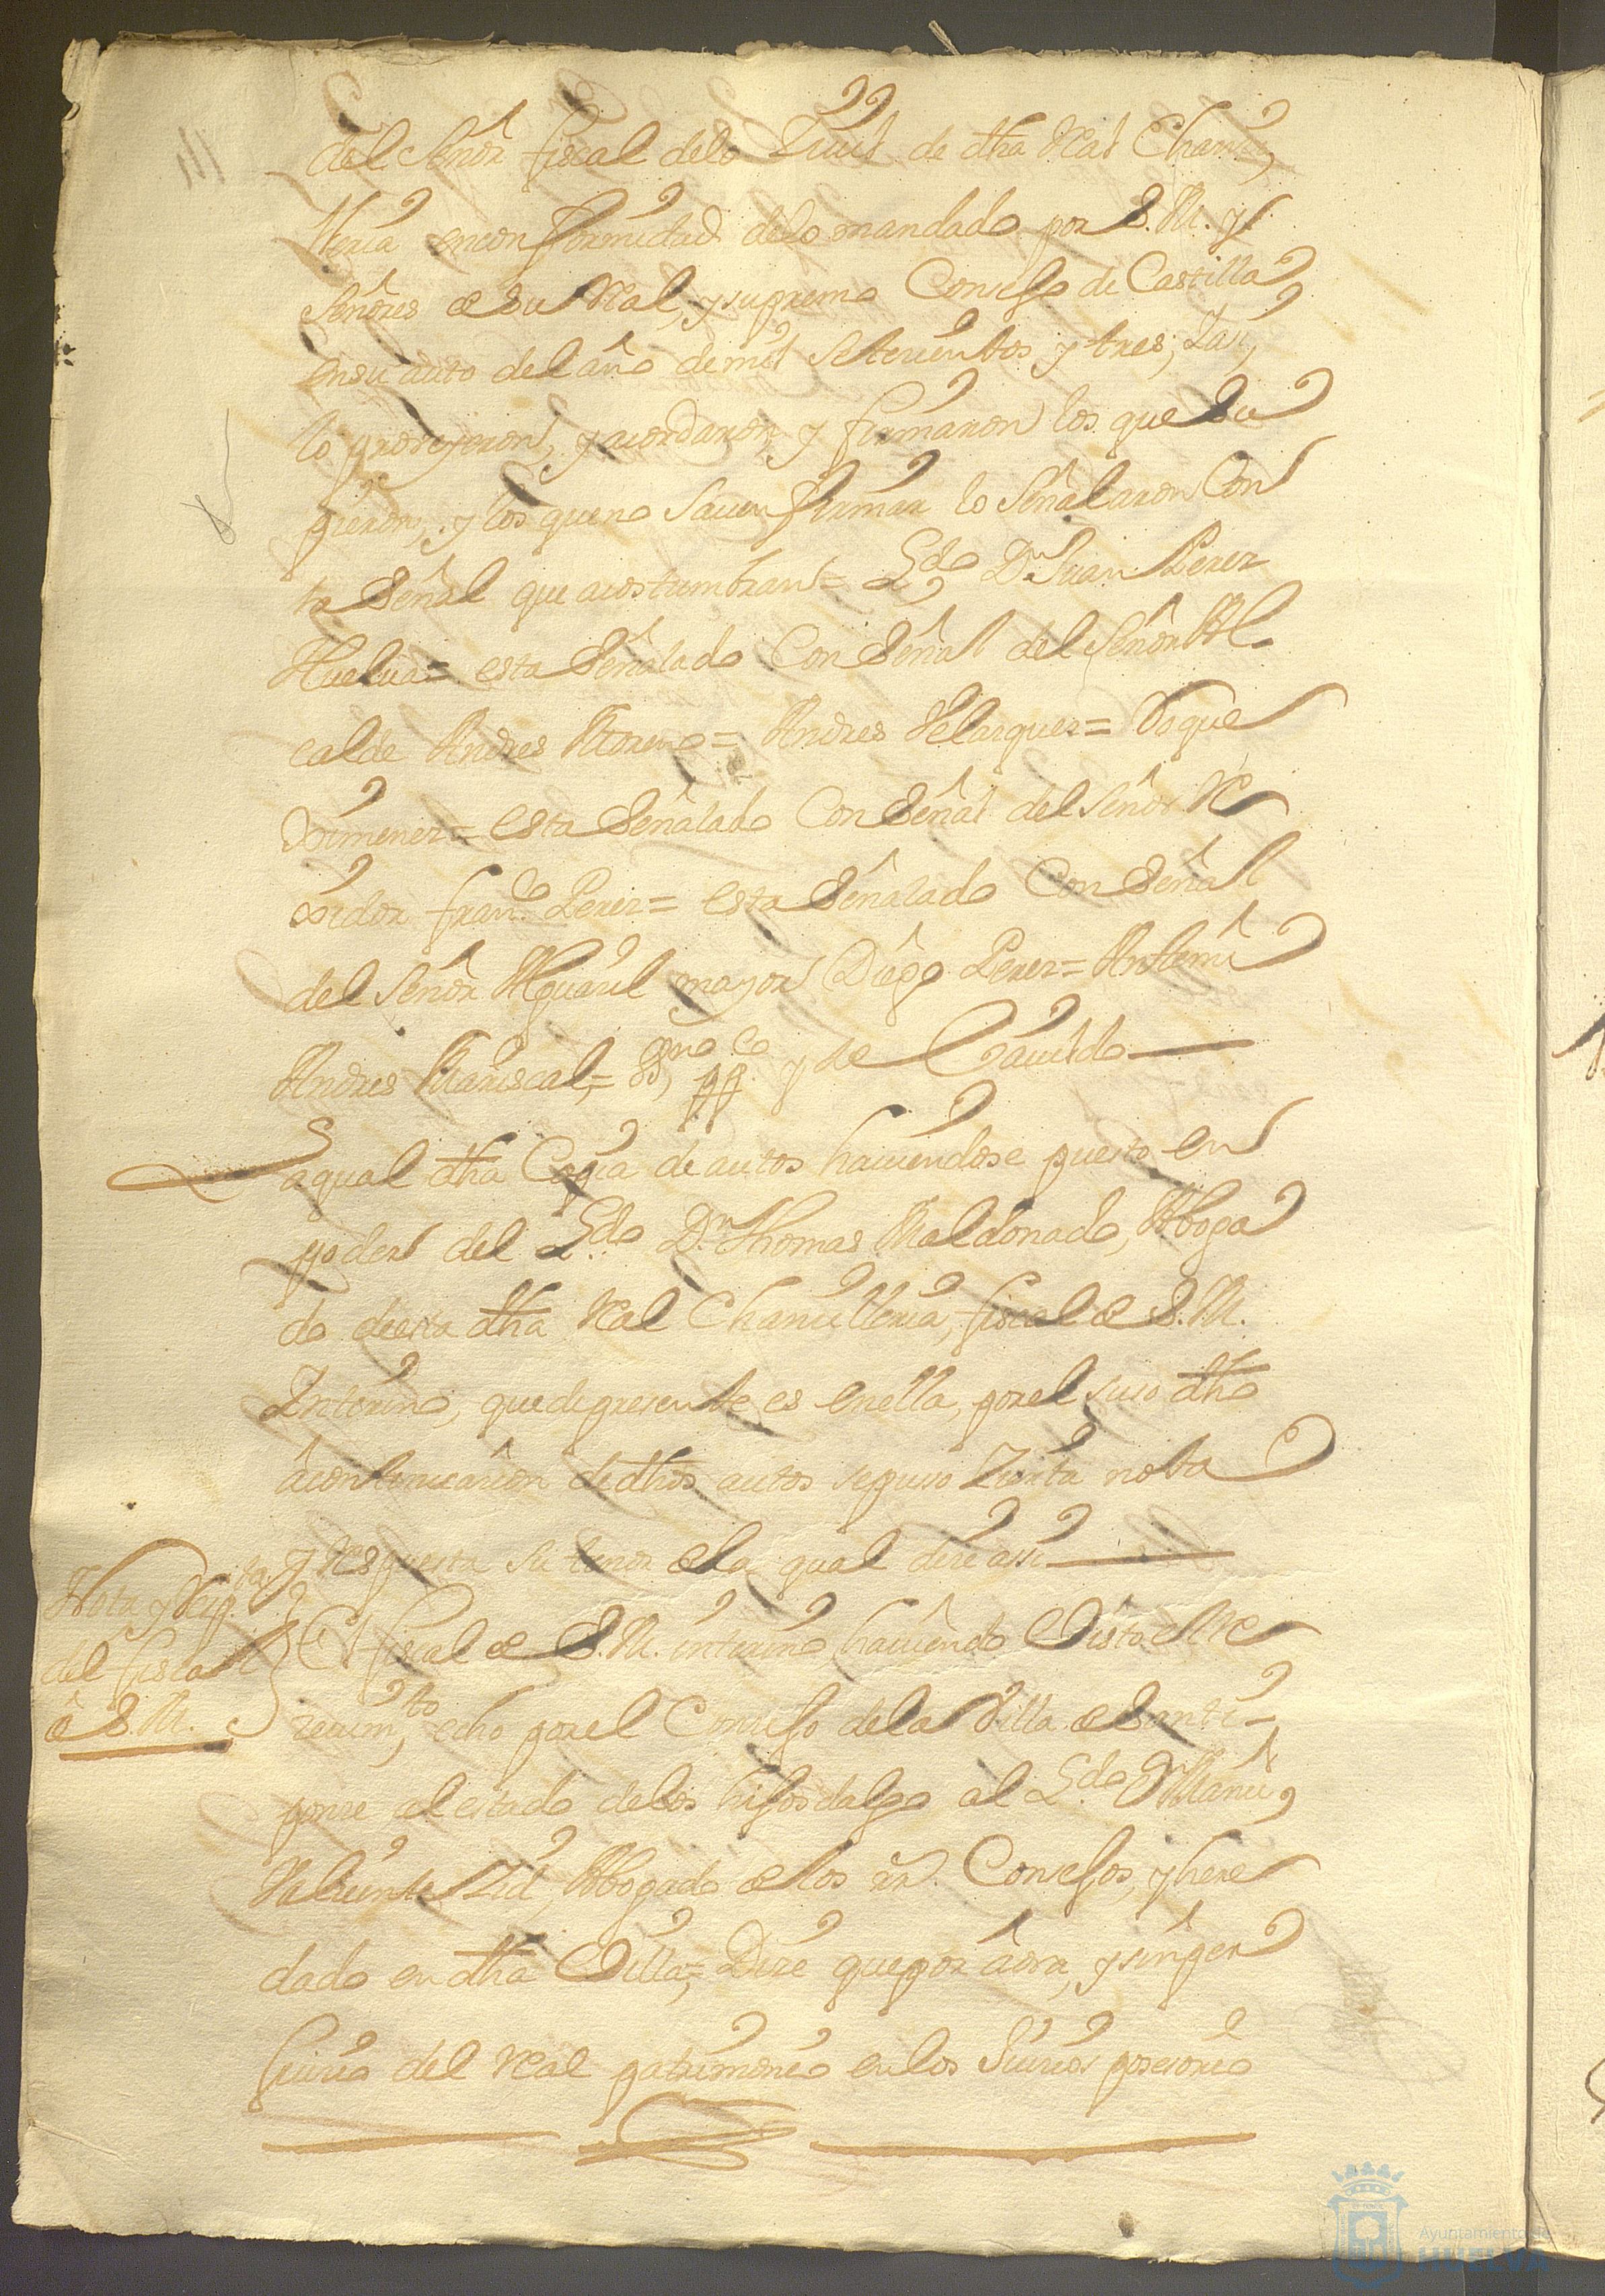 del Señor fiscal de lo Zivil de dha Real Chanzi,
lleria en conformidad de lo mandado por S. M. y
Señores de su Real, y supremo Consejo de Castilla
en su auto del año de mil Setezientos y tres; Y asi,
lo proveyeron, y acordaron, y firmaron los que Su
pieron, y los que no Saven firmar lo Señalaron Con
la Señal que acostumbran = Lzdo Dn Juan Perez
Huelva = esta Señalado Con Señal del Señor Al
calde Andres Moreno = Andres Velazquez = Roque
Ximenez = esta Señalado Con Señal del Señor Re
xidor franco Perez = esta Señalado Con Señal
del Señor Alguazil mayor Diego Perez = Antemi
Andres Mariscal, = ssno ppco y de Cavildo
La qual dha Copia de autos haviendose puesto en
poder del Lzdo Dn Thomas Maldonado, Aboga
do de esta dha Real Chanzilleria, fiscal de S. M.
Interino, que de presente es en ella, por el suso dho
à continuazion de dhos autos se puso Zierta nota
y respuesta su tenor de la qual dize assi
Nota y Respta
del fiscal
de S. M.
El fiscal de S. M. interino haviendo Visto el Re
zevimto, echo por el Consejo de la Villa de Santi
ponze al estado de los hijos dalgo al Lzdo Dn Manul
Valiente Zid, Abogado de los RRs Consejos, y here
dado en dha Villa, = Dize que por àora, y sin per
juizio del Real patrimonio en los Juizios posesorio
Ayuntamiento de
HUELVA